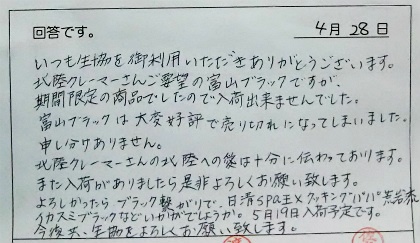 回答です。
4月28日
いつも生協を御利用いただきありがとうございます。
北陸クレーマーさんご要望の富山ブラックですが、
期間限定の商品でしたので入荷出来ませんでした。
富山ブラックは大変好評で売り切れになってしまいました。
申し分けありません。
北陸クレーマーさんの北陸への愛は十分に伝わっております。
また入荷がありましたら是非よろしくお願い致します。
よろしかったらブラック繋がりで、日清spa王×クッキングパパ荒岩流
イカスミブラックなどいかがでしょうか。5月19日入荷予定です。
今後共、生協をよろしくお願い致します。